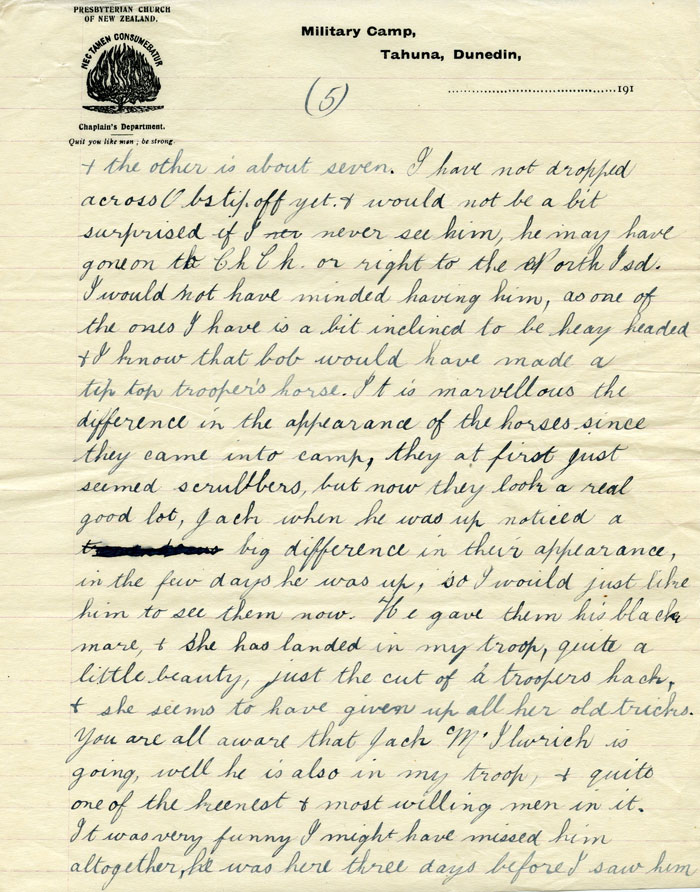 PRESBYTERIAN CHURCH
OF NEW ZEALAND.
NEC TAMEN CONSUMEBATUR
Chaplain's Department.
Quit you like men ; be strong
Military Camp,
Tahuna, Dunedin,
191
(5)
& the other is about seven. I have not dropped
across Obs tip. off yet. & would not be a bit
surprised if I never see him, he may have
gone on to Ch Ch. or right to the North Isd.
I would not have minded having him, as one of
the ones I have is a bit inclined to be heay headed
& I know that bob would have made a
tip top trooper's horse. It is marvellous the
difference in the appearance of the horses since
they came into camp, they at first just
seemed scrubbers, but now they look a real
good lot, Jack when he was up noticed a
big difference in their appearance,
in the few days he was up, so I would just like
him to see them now. He gave them his black
mare, & she has landed in my troop, quite a
little beauty, just the cut of a troopers hack,
& she seems to have given up all her old tricks.
You are all aware that Jack McIlwrich is
going, well he is also in my troop, & quite
one of the keenest & most willing men in it.
It was very funny I might have missed him
altogether, he was here three days before I saw him